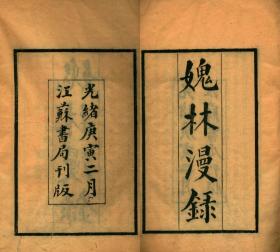 媿林漫錄
光緒庚寅二月
江蘇書局刊版